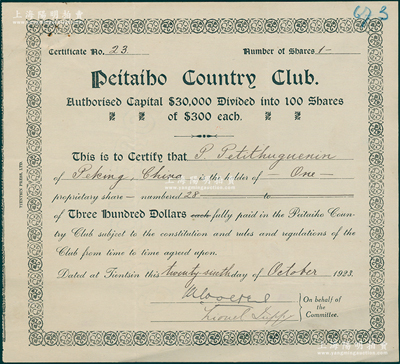 Certificate No. 23.
Number of Shares 1-
Peitaiho Country Club.
Authorised Capital $30,000 Divided into 100 Shares
of $300 each.
This is to Certify that P. Petithuguenin
of Peking, China is the holder of — One —
proprietary share — numbered 28 — to —
of Three Hundred Dollars each fully paid in the Peitaiho Coun-
try Club subject to the constitution and rules and regulations of the
Club from time to time agreed upon.
Dated at Tientsin this twenty sixth day of October 1923.
On behalf of
the
Committee.
TIENTSIN PRESS, LTD.